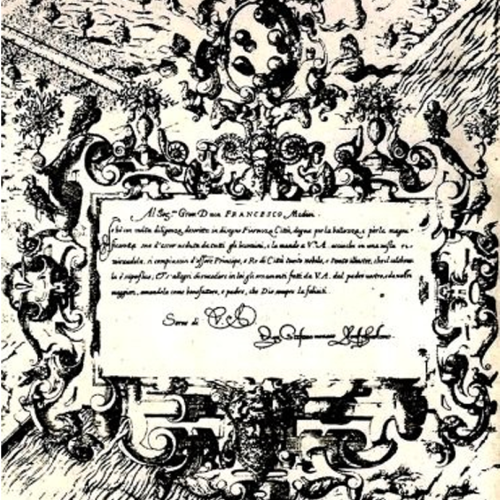 Al Ser.mo Gran Duca FRANCESCO Medici.
o hò con molta diligenza, descritto in disegno Fiorenza Città, degna per la bellezza, e per la magni
ficenza sua d'esser veduta da tutti gli huomini, e la mando a V.A. accioche in una
mirandola, si compiaccia d'esser Principe, e Re di Città tanto nobile, e
la è riposseduta, et s'allegri di vedere in lei gli ornamenti fatti da V.A. dal padre vostro, e da
maggiori, amandola come benefattore, e padre, che Dio sempre la feliciti.
Servo di V.A.
Don Stefano monaco